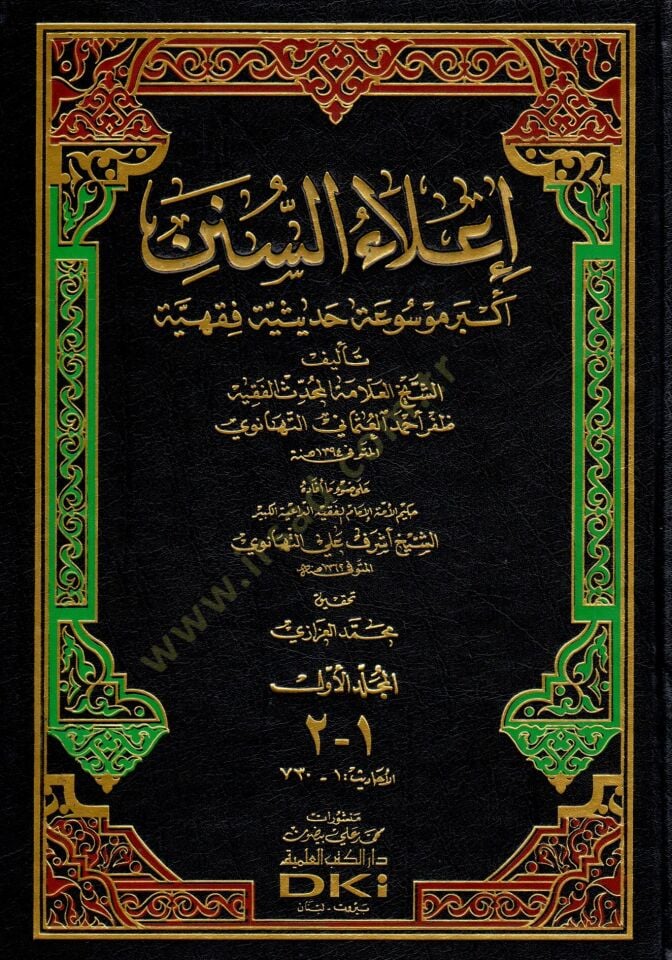 إِعْلَاءُ السُّنَنِ
أكبر موسوعة حديثية فقهية
تأليف
الشيخ العلامة المحدث الفقيه
ظفر أحمد العثماني التهانوي
المتوفى ١٣٩٤ هـ
على ضوء ما أفاده
حكيم الأمة الإمام الفقيه الداعية الكبير
الشيخ أشرف علي التهانوي
المتوفى ١٣٦٢ هـ
تحقيق
محمد العزازي
المجلد الأول
١ - ٢
الأحاديث: ١ - ٧٣٠
منشورات
محمد علي بيضون
دار الكتب العلمية
DKi
بيروت - لبنان